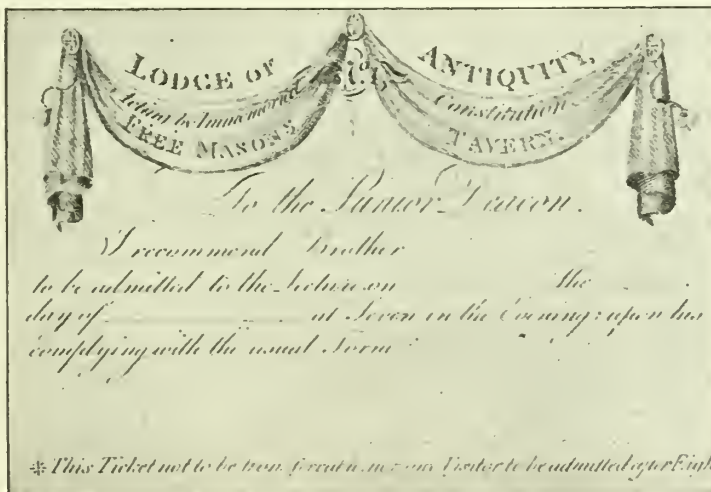 LODGE OF ANTIQUITY,
by Immemorial Constitution
FREE MASONS TAVERN.
To the Junior Deacon.
I recommend Brother
to be admitted to the Lecture on the
day of at Seven in the Evening: upon his
complying with the usual Form
* This Ticket not to be nor any Visitor to be admitted after Eigh